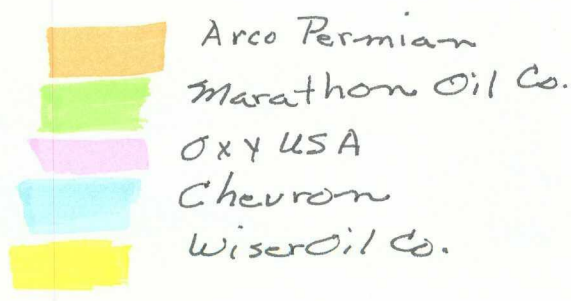 Arco Permian
Marathon Oil Co.
Oxy USA
Chevron
Wiser Oil Co.